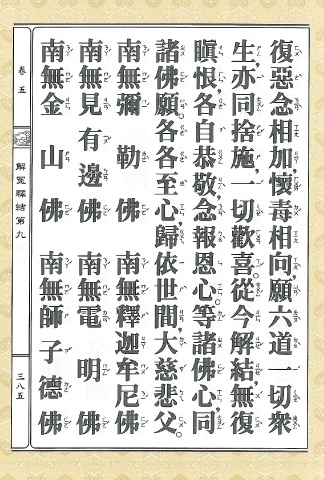 復惡念相加,懷毒相向,願六道一切眾
生,亦同捨施,一切歡喜。從今解結,無復
瞋恨,各自恭敬,念報恩心。等諸佛心,同
諸佛願。各各至心,歸依世間,大慈悲父。
南無彌勒佛 南無釋迦牟尼佛
南無見有邊佛 南無電明佛
南無金山佛 南無師子德佛
卷五 解冤釋結第九 三八五